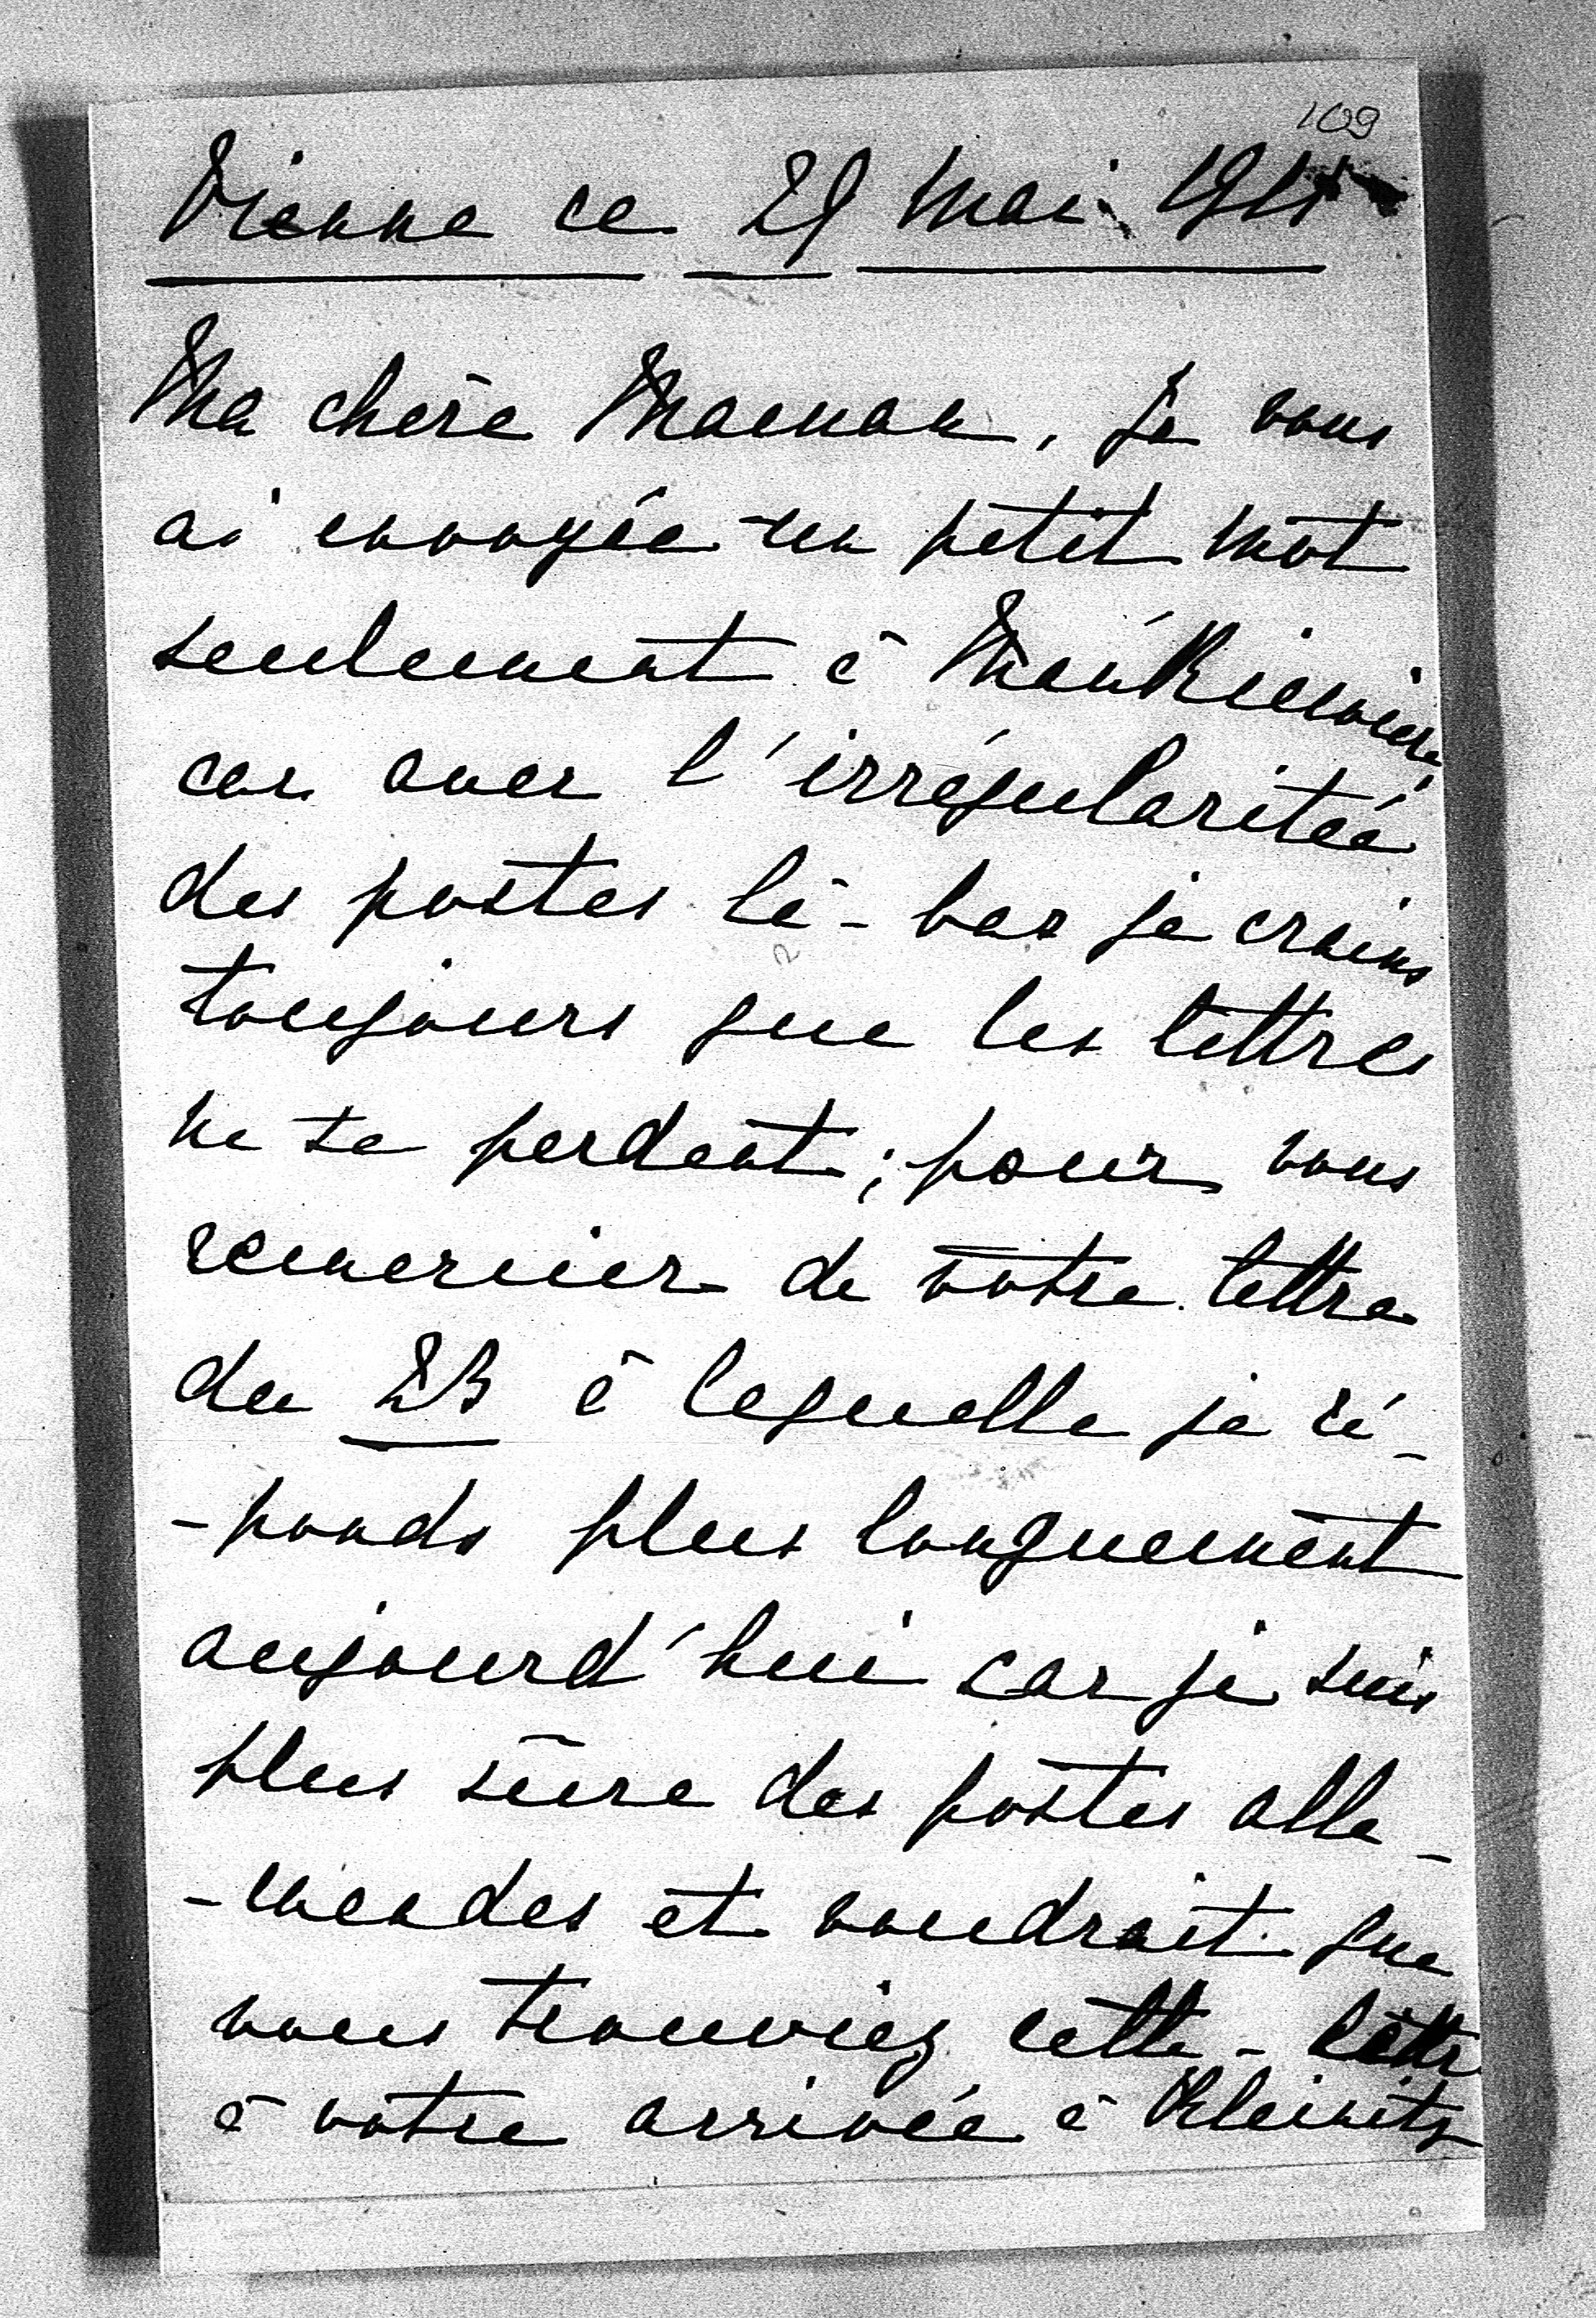 109
Vienne ce 29 Mai 1911
Ma chère Maman, Je vous
ai envoyée un petit mot
seulement à Mańkiewicze,
car avec l'irrégularitée
des postes là-bas je crains
toujours que les lettres
ne se perdent; pour vous
remercier de votre lettre
du 23 à laquelle je ré-
-ponds plus longuement
aujourd'hui car je suis
plus sûre des postes alle-
-mandes et voudrait que
vous trouviez cette - lettre
à votre arrivée à Kleinitz